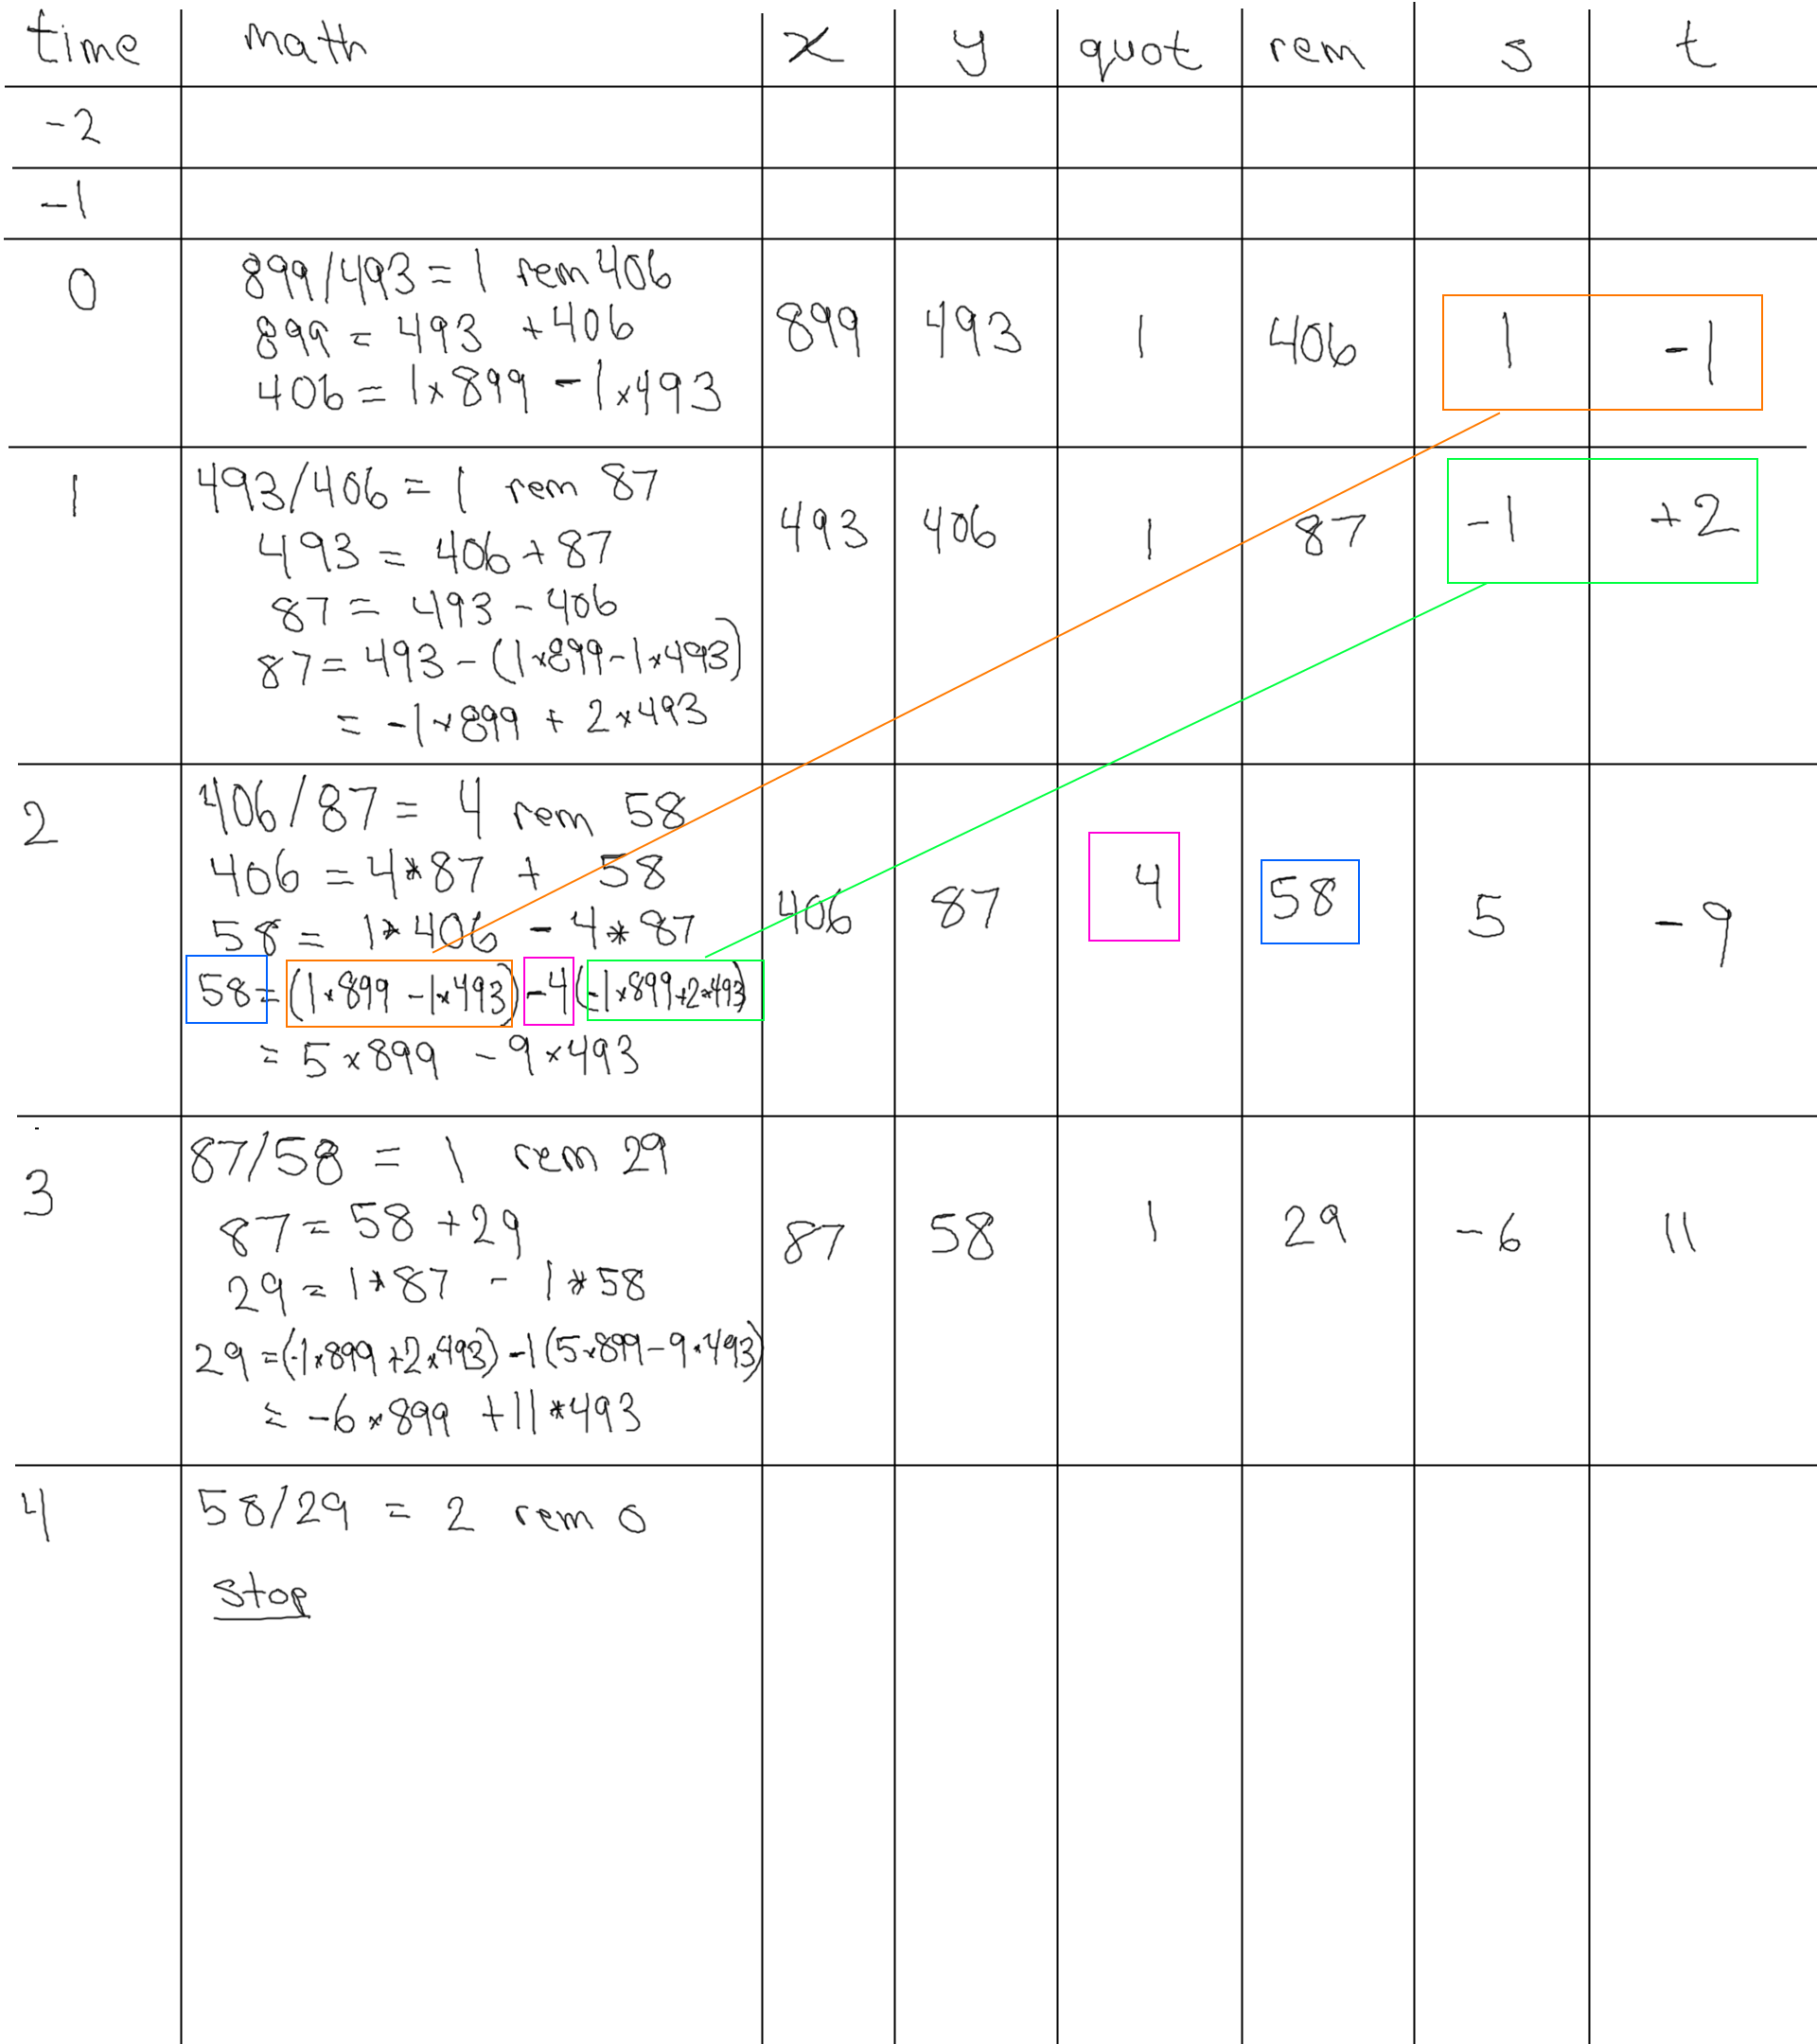 time math x y quot rem s t
-2
-1
0
899/493 = 1 rem 406
899 = 493 + 406
406 = 1×899 - 1×493
899 493 1 406 1 -1
1
493/406 = 1 rem 87
493 = 406 + 87
87 = 493 - 406
87 = 493 - (1×899 - 1×493)
= -1×899 + 2×493
493 406 1 87 -1 +2
2
406/87 = 4 rem 58
406 = 4*87 + 58
58 = 1*406 - 4*87
58 = (1×899 - 1×493) - 4(-1×899+2×493)
= 5×899 - 9×493
406 87 4 58 5 -9
3
87/58 = 1 rem 29
87 = 58 + 29
29 = 1*87 - 1*58
29 = (-1×899 + 2×493) - 1(5×899 - 9×493)
= -6×899 + 11*493
87 58 1 29 -6 11
4
58/29 = 2 rem 0
stop